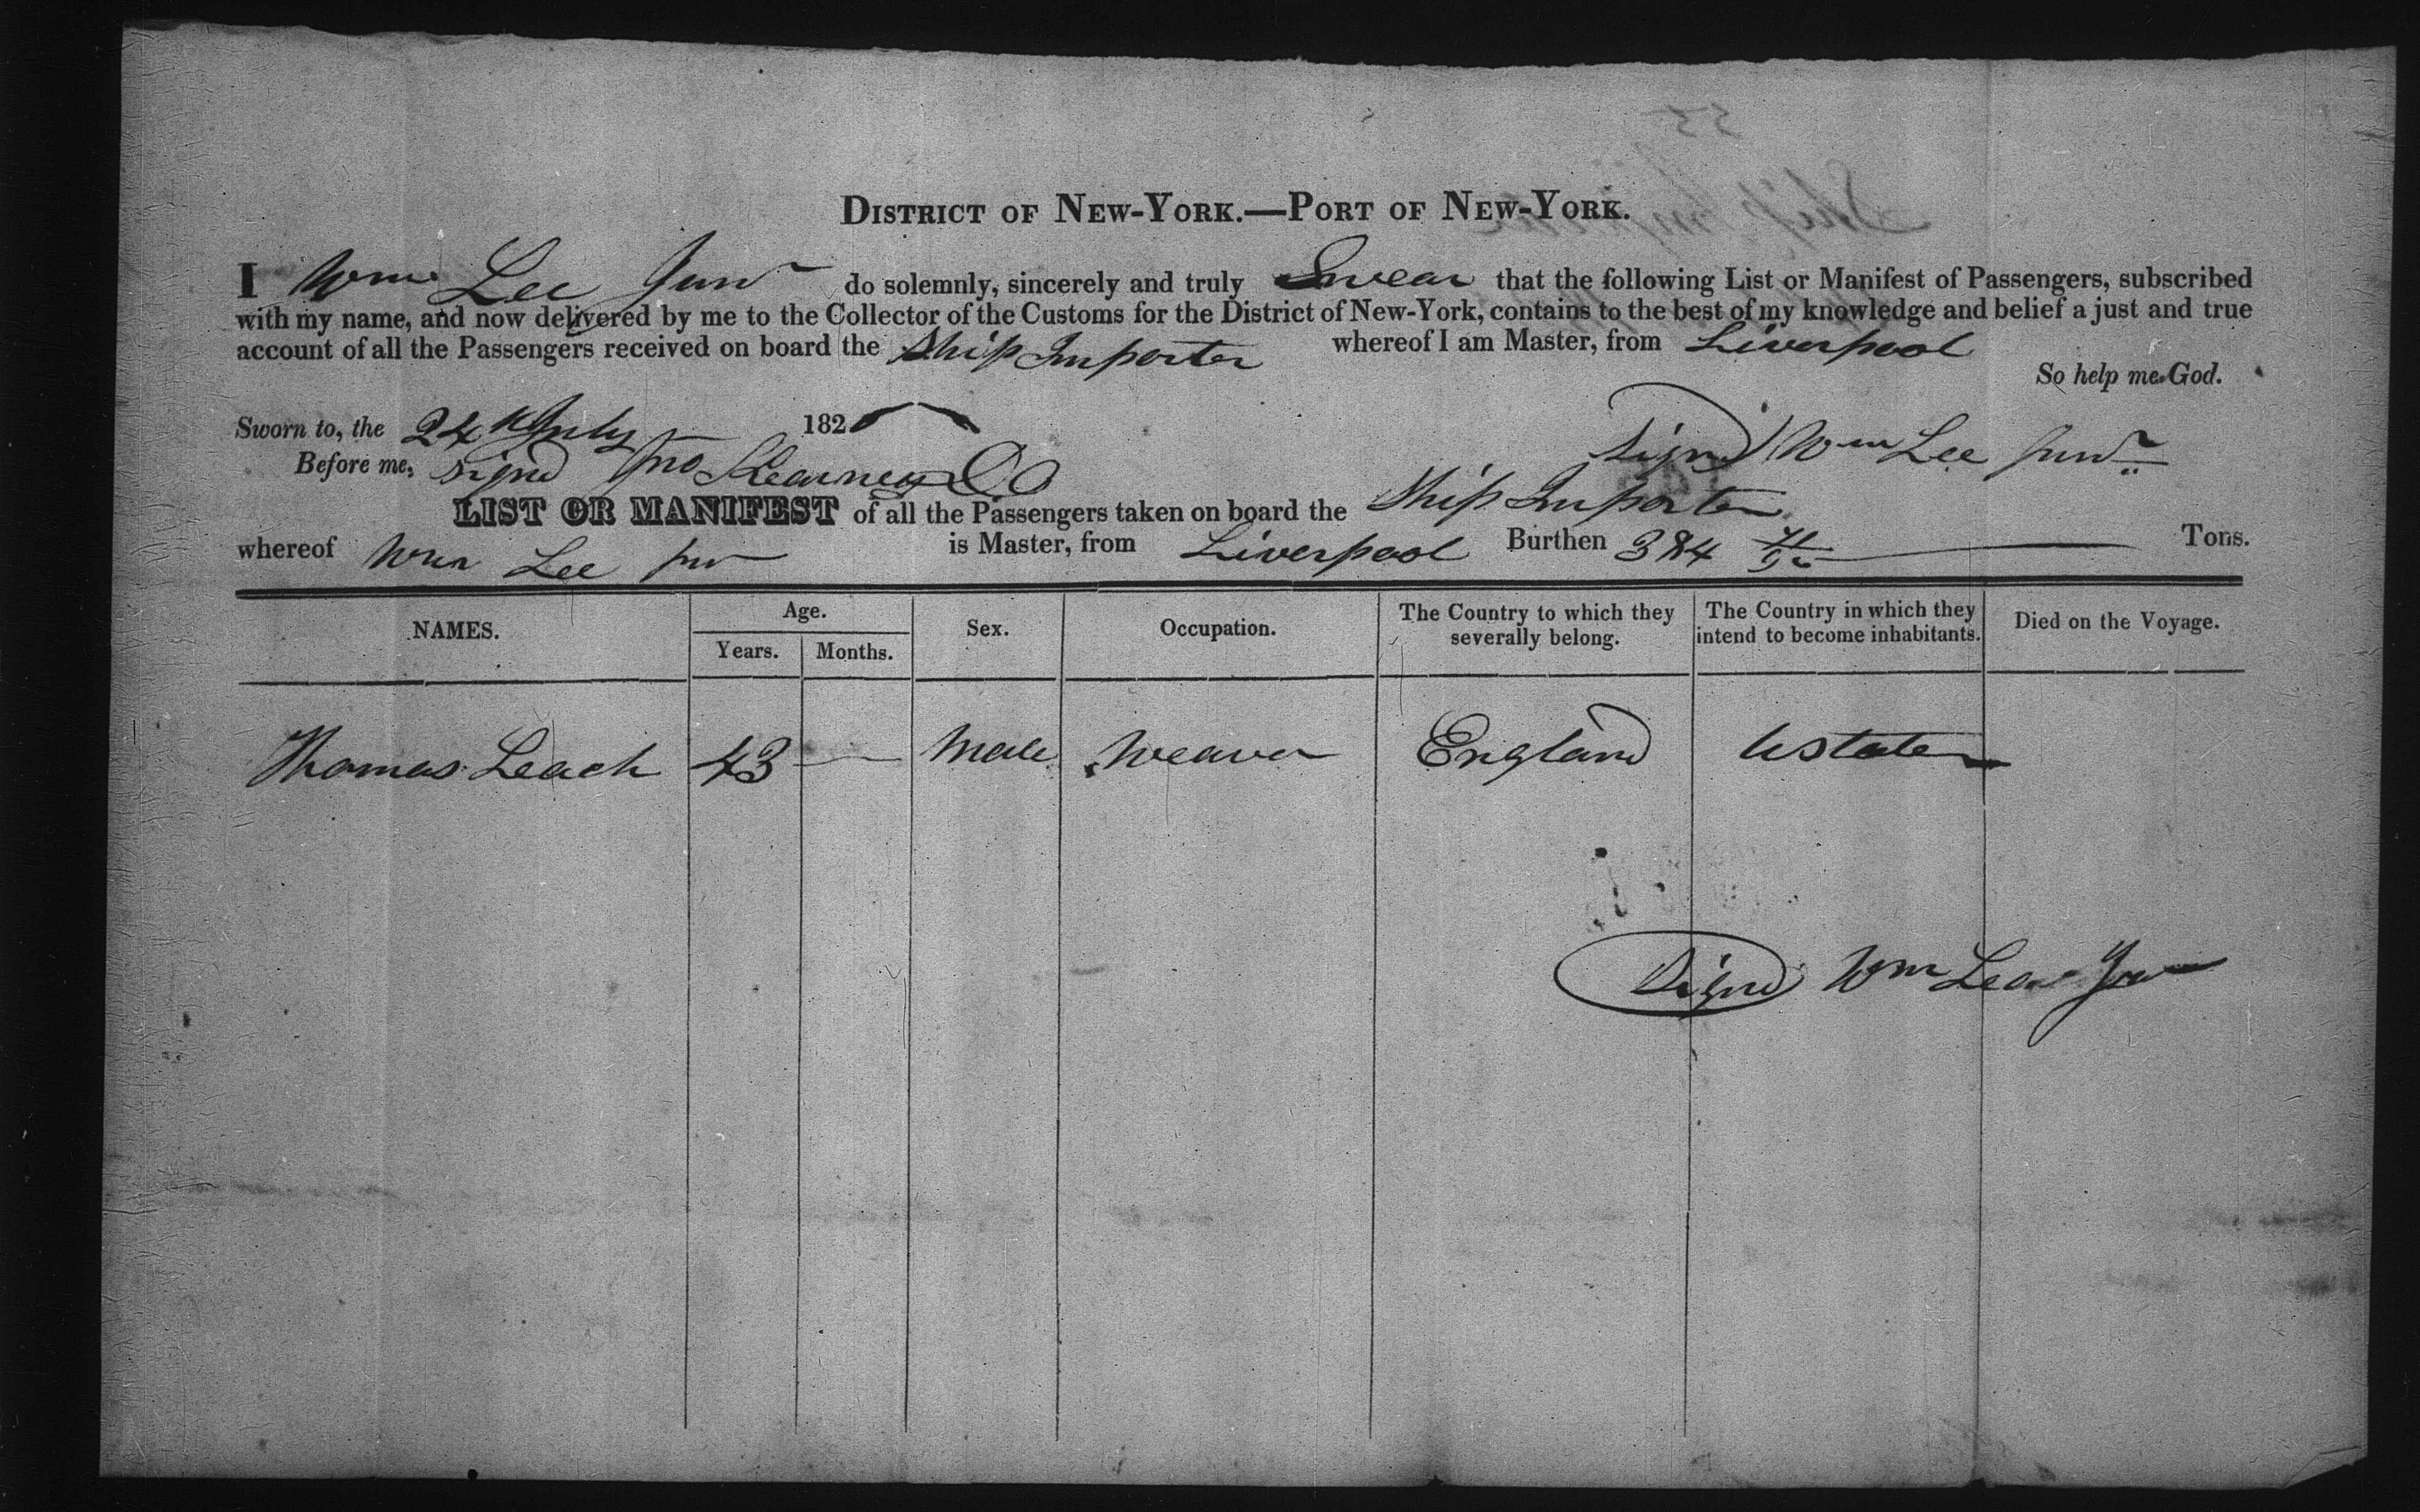 DISTRICT OF NEW-YORK.—PORT OF NEW-YORK.
I Wm Lee Junr do solemnly, sincerely and truly Swear that the following List or Manifest of Passengers, subscribed
with my name, and now delivered by me to the Collector of the Customs for the District of New-York, contains to the best of my knowledge and belief a just and true
account of all the Passengers received on board the Ship Importer whereof I am Master, from Liverpool
So help me God.
Sworn to, the 24 July 182
Before me, Signd Jno Kearney DC Signd Wm Lee Junr
LIST OR MANIFEST of all the Passengers taken on board the Ship Importer
whereof Wm Lee Jnr is Master, from Liverpool Burthen 384 Tons.
NAMES. Age. Years. Months. Sex. Occupation. The Country to which they severally belong. The Country in which they intend to become inhabitants. Died on the Voyage.
Thomas Leach 43 — Male Weaver England UStates
Signd Wm Lee Jnr